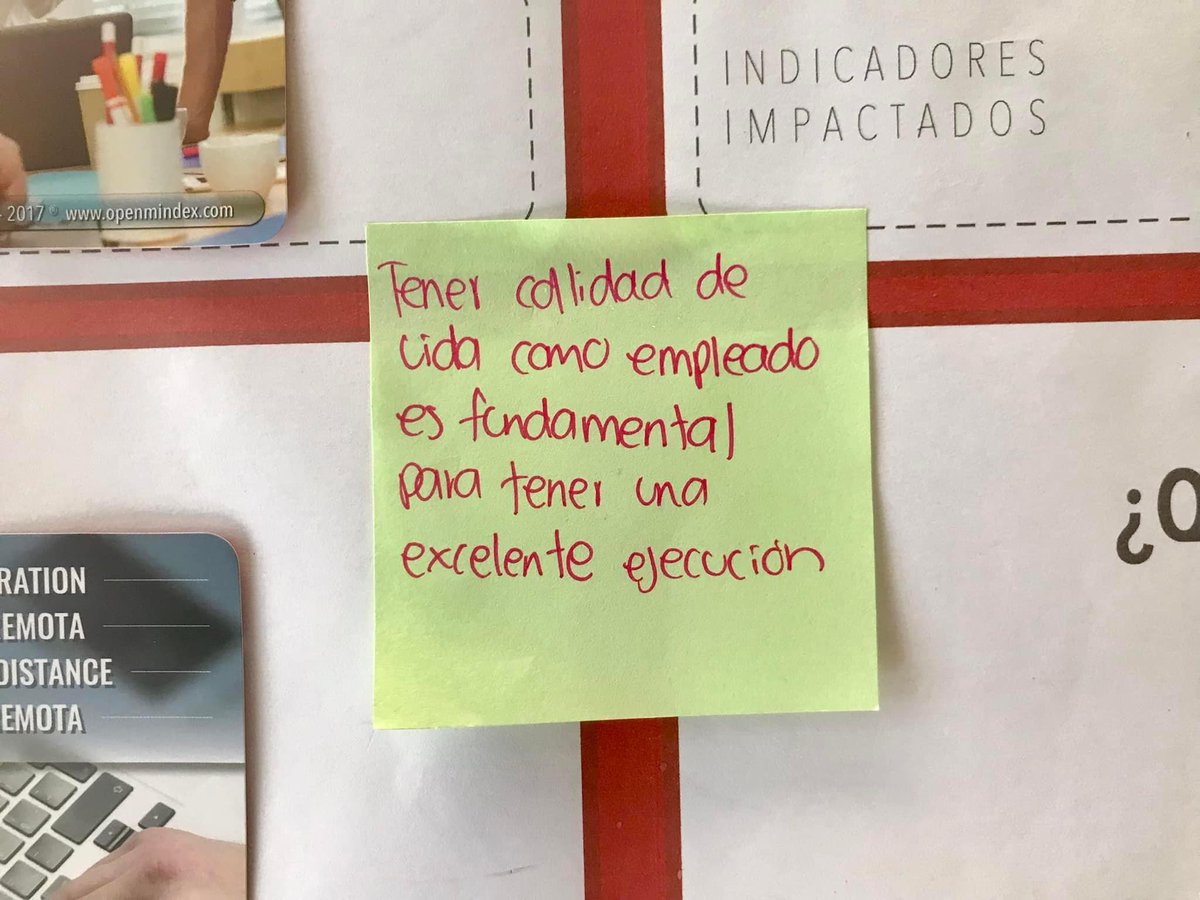 INDICADORES
IMPACTADOS
2017 © www.openmindex.com
Tener calidad de
vida como empleado
es fundamental
para tener una
excelente ejecución
¿Q
RATION
EMOTA
DISTANCE
EMOTA